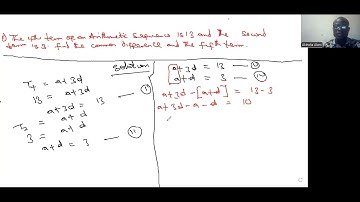 The 4th term of an Arithmetic Sequence is 13 and the second
term is 3. find the common difference and the fifth term.
Solution
T₄ = a+3d
13 = a+3d
a+3d = 13 — (i)
T₂ = a+d
3 = a+d
a+d = 3 — (ii)
a+3d = 13 — (i)
a+d = 3 — (ii)
a+3d-[a+d] = 13-3
a+3d-a-d = 10